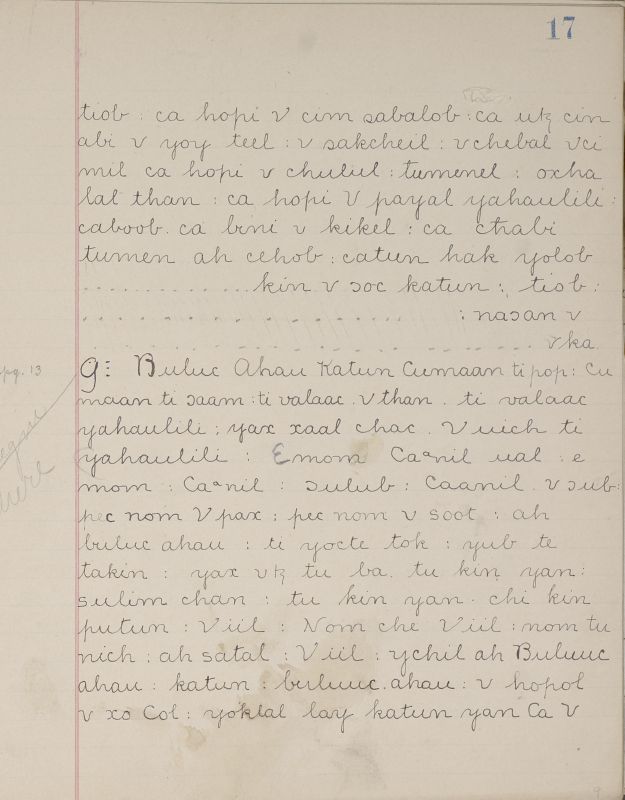 17
tiob : ca hopi V cim sabalob : ca utz cin
abi v yoy teel : v sakcheil : vchebal vci
mil ca hopi v chulul : tumenel : oxha
lal than : ca hopi V payal yahaulili :
caboob . ca bini v kikel : ca chabi
tumen ah cehob : catun hak yolob
............kin v ɔoc katun : tiob :
................ : naɔan v
.................... vka
pg. 13
9⋮ Buluc Ahau Katun Cumaan ti pop : Cu
maan ti ɔaam : ti valaac . v than . ti valaac
yahaulili : yax xaal chac . V uich ti
yahaulili : Emom Caanil ual : e
mom : Caanil : ɔulub : Caanil . v ɔub :
pec nom V pax : pec nom v soot : ah
buluc ahau : ti yocte tok : yub te
takin : yax vtz tu ba . tu kin yan :
sulim chan : tu kin yan . chi kin
putun : Viil : Nom che Viil : nom tu
nich : ah satal : Viil : ychil ah Buluuc
ahau : katun : buluuc . ahau : v hopol
v xo Col : yoklal lay katun yan Ca V
9